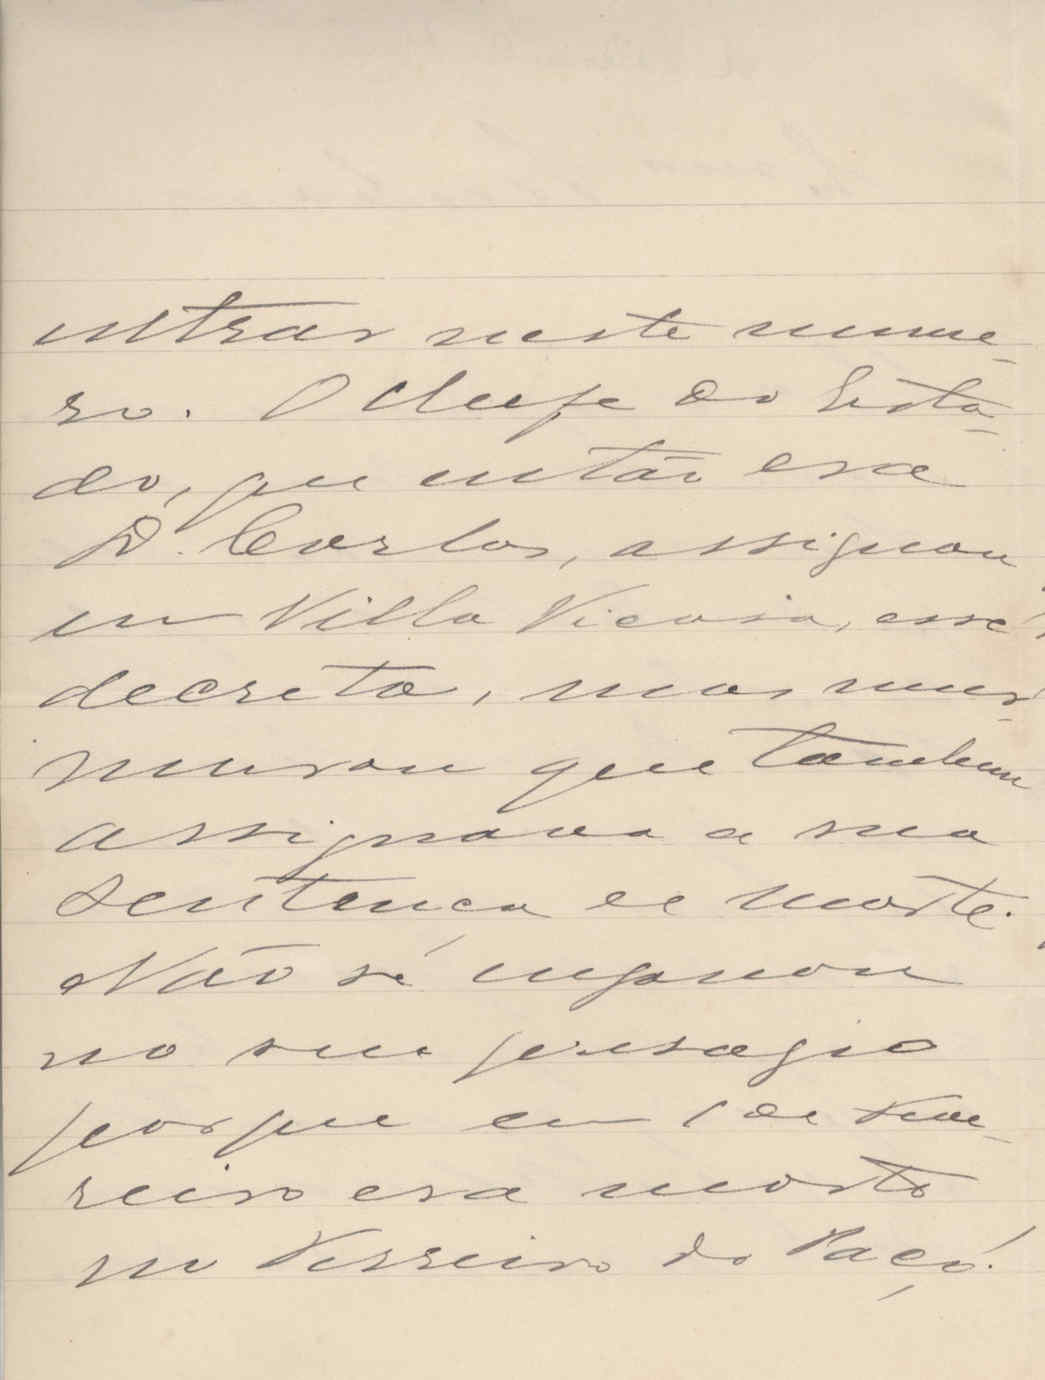 entrar neste nume-
ro. O Chefe do Esta-
do, que então era
D. Carlos, assignou
em Villa Viçosa, esse
decreto, mas mur-
murou que tambem
assignava a sua
sentença de morte.
Não se enganou
no seu presagio
porque em 1 de Feve-
reiro era morto
no Terreiro do Paço.